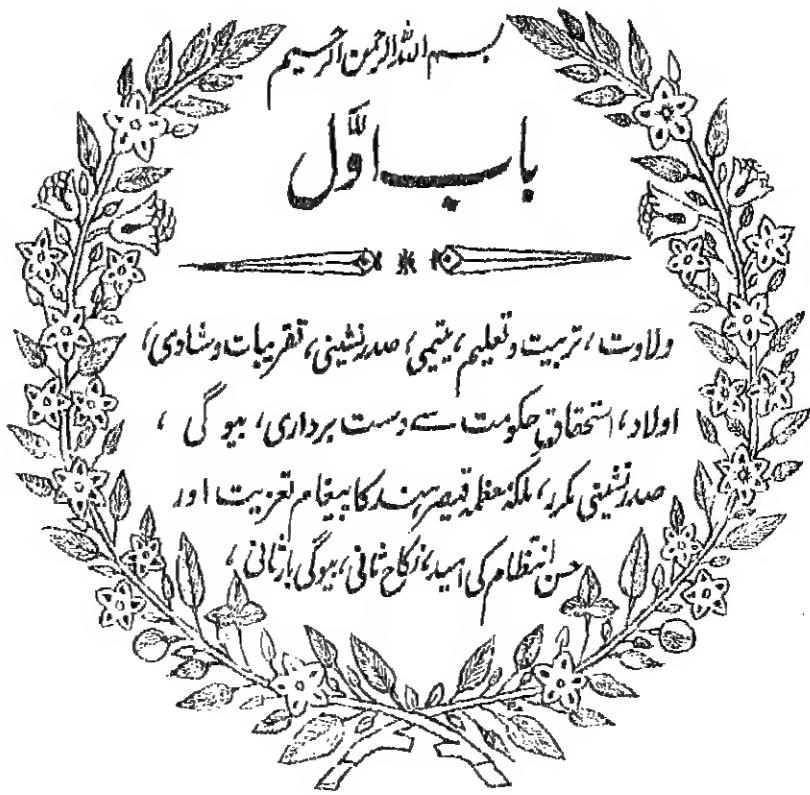 بسم اللہ الرحمن الرحیم
باب اوّل
ولادت، تربیت و تعلیم، یتیمی، صدر نشینی، تقریبات و شادی،
اولاد، استحقاقِ حکومت سے دست برداری، بیوگی،
صدر نشینی مکرر، ملکہ معظمہ قیصر ہند کا پیغام تعزیت اور
حسن انتظام کی امید، نکاح ثانی، بیوگی بار ثانی،